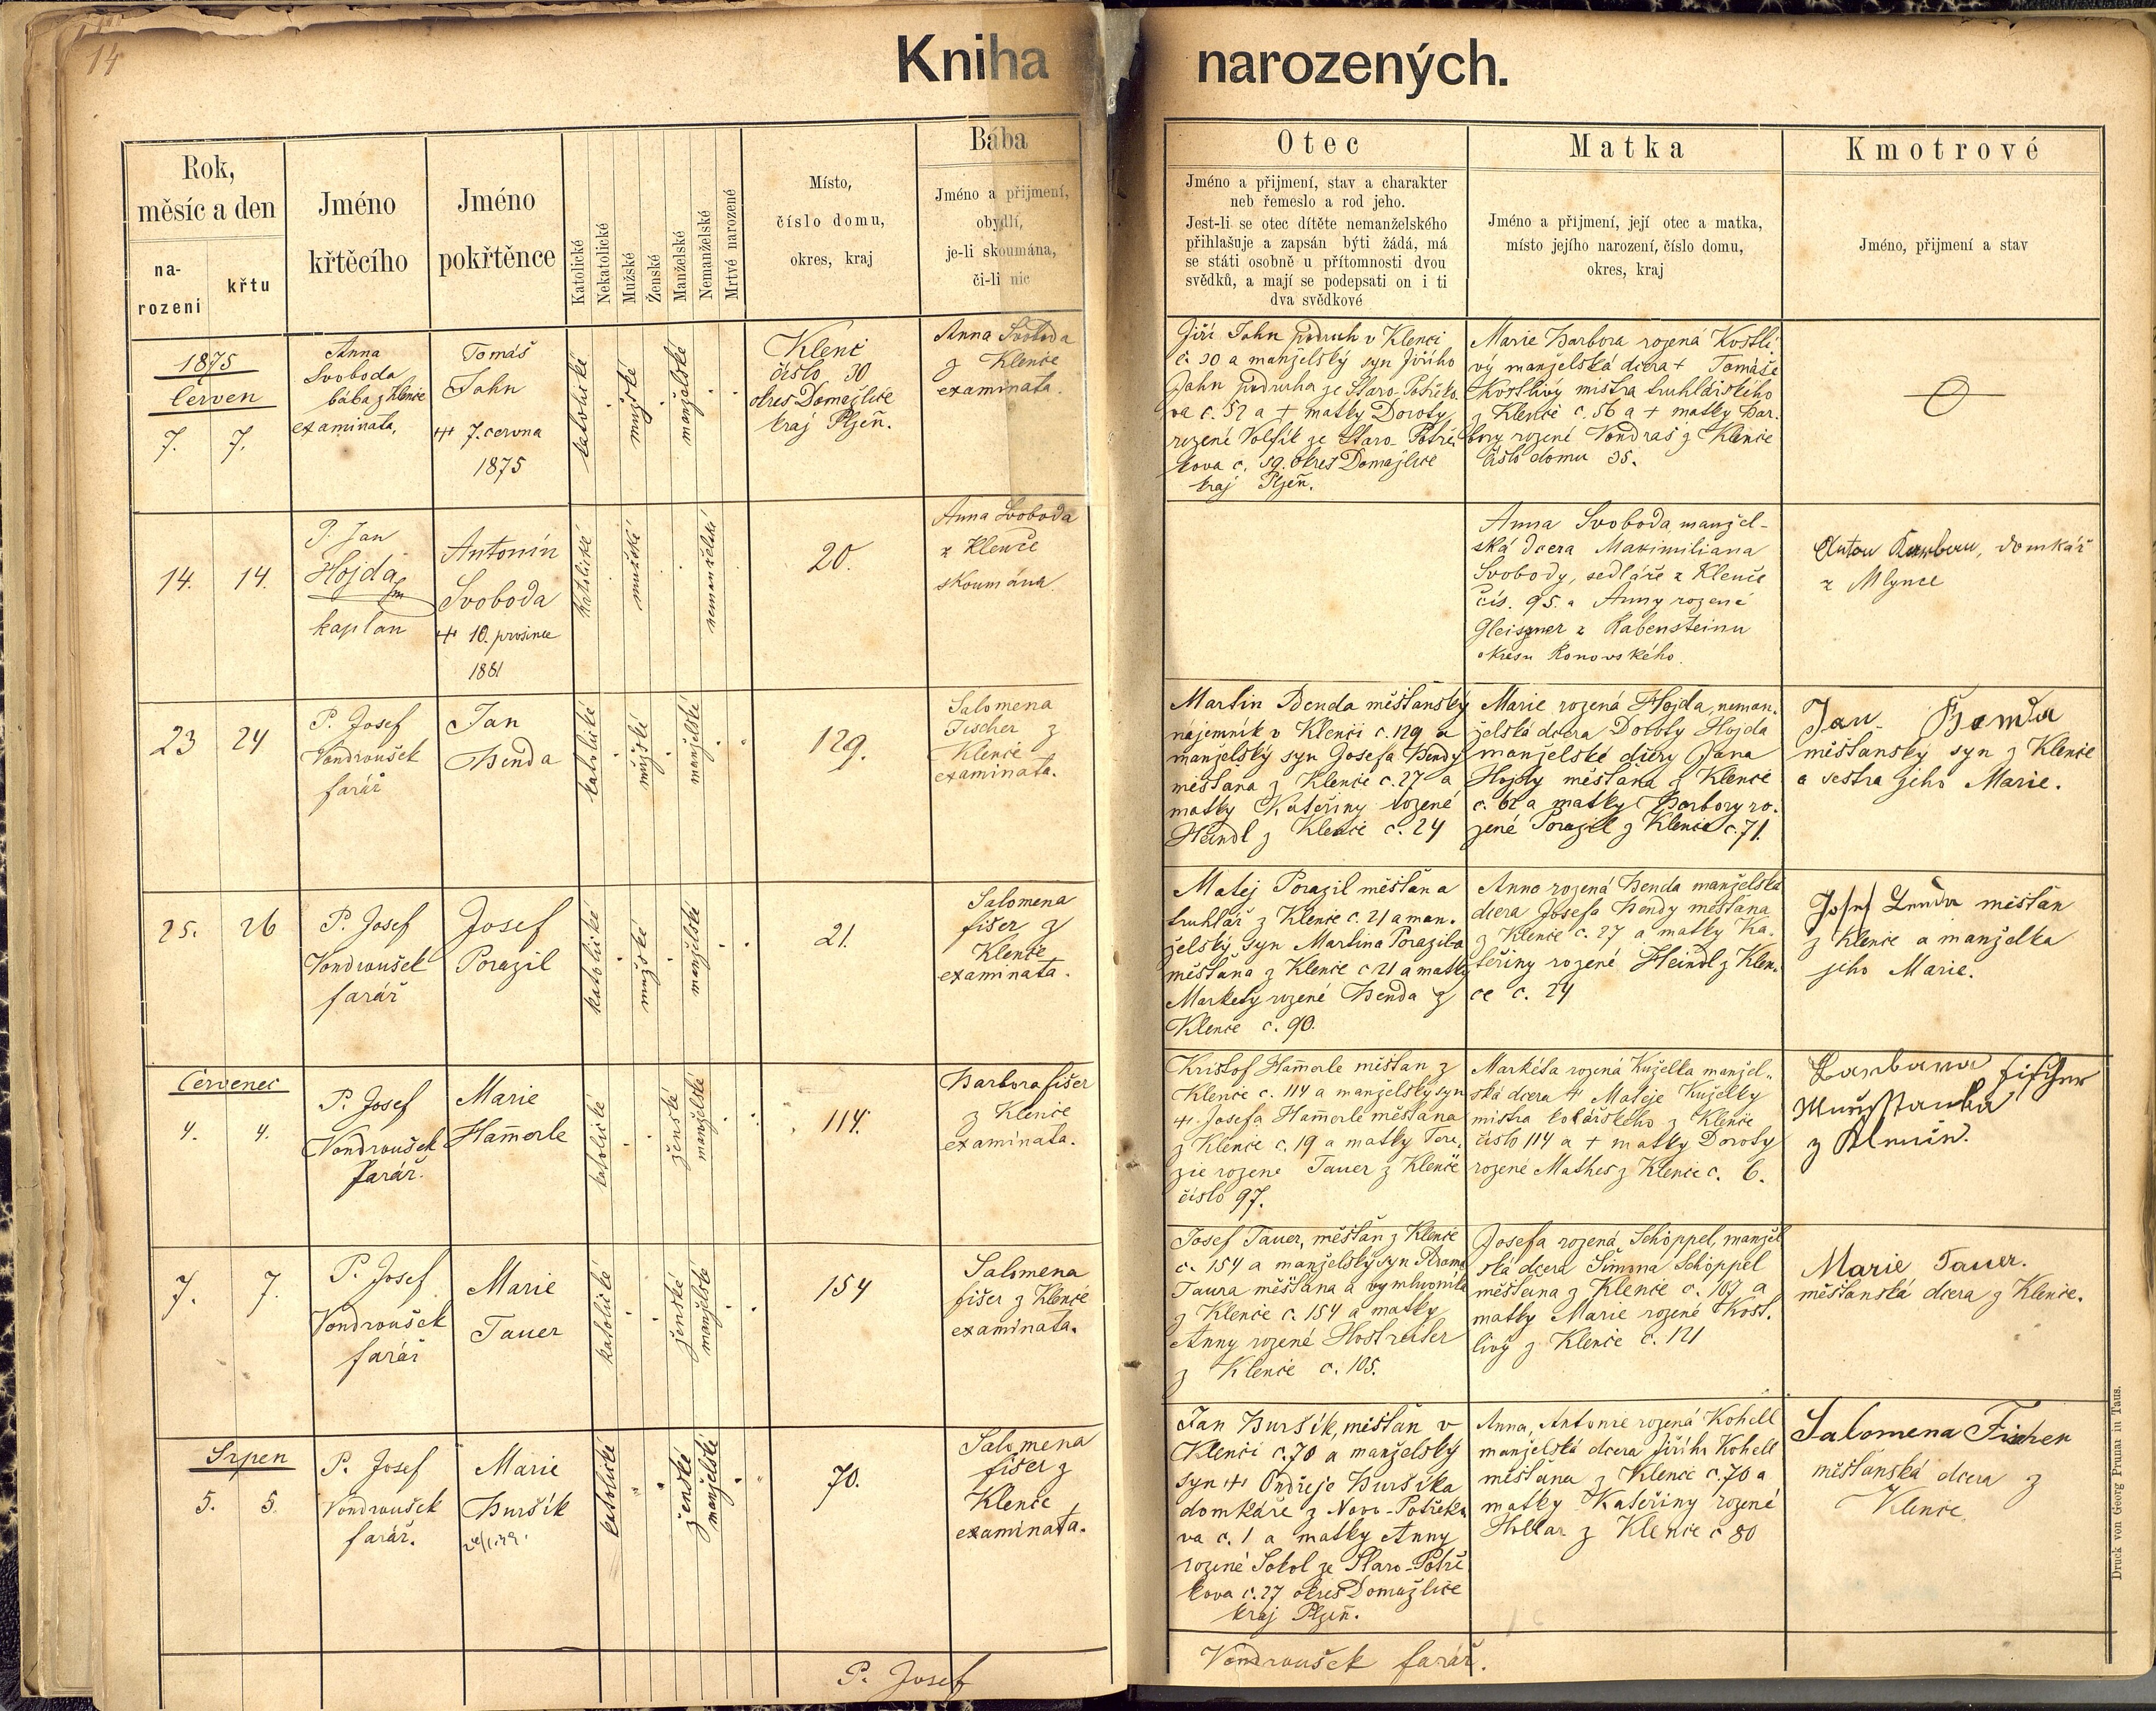 14
Kniha narozených.
Rok,
měsíc a den
na-
rozeni
křtu
Jméno
křtěcího
Jméno
pokřtěnce
Katolické
Nekatolické
Mužské
Ženské
Manželské
Nemanželské
Mrtvé narozené
Místo,
číslo domu,
okres, kraj
Bába
Jméno a přijmení,
obydlí,
je-li skoumána,
či-li nic
Otec
Jméno a přijmení, stav a charakter
neb řemeslo a rod jeho.
Jest-li se otec dítěte nemanželského
přihlašuje a zapsán býti žádá, má
se státi osobně u přítomnosti dvou
svědků, a mají se podepsati on i ti
dva svědkové
Matka
Jméno a přijmení, její otec a matka,
místo jejího narození, číslo domu,
okres, kraj
Kmotrové
Jméno, přijmení a stav
1875
Červen
7. 7.
Anna
Svoboda
bába z Klenče
examinata.
Tomáš
Jahn
7. června
1875
katolické
mužské
manželské
Klenč
číslo 30
okres Domažlice
kraj Plzeň.
Anna Svoboda
z Klenče
examinata.
Jiří Jahn podruh v Klenči
č. 30 a manželský syn Jiřího
Jahn podruha ze Staro-Postřeko-
va č. 52 a + matky Doroty
rozené Volfík ze Staro-Postře-
kova č. 59. okres Domažlice
kraj Plzeň.
Marie Barbora rozená Kostli-
vý manželská dcera + Tomáše
Kostlivý mistra truhlářského
z Klenče č. 56 a + matky Bar-
bory rozené Vondraš z Klenče
číslo domu 35.
14. 14.
P. Jan
Hojda
kaplan
Antonín
Svoboda
10. prosince
1881
katolické
mužské
nemanželské
20.
Anna Svoboda
z Klenče
skoumána.
Anna Svoboda, manžel-
ská dcera Maximiliana
Svobody, sedláře z Klenče
čís. 95. a Anny rozené
Gleiszner z Rabensteinu
okresu Ronovského.
Anton, domkář
z Mlýnce
23 24
P. Josef
Vondroušek
farář
Jan
Benda
katolické
mužské
manželské
129.
Salomena
Fischer z
Klenče
examinata.
Martin Benda měšťanský
nájemník v Klenči č. 129 a
manželský syn Josefa Bendy
měšťana z Klenče č. 27 a
matky Kateřiny rozené
Heindl z Klenče č. 24
Marie rozená Hojda, neman-
želská dcera Doroty Hojda
manželské dcery Jana
Hojdy měšťana z Klenče
č. 62 a matky Barbory ro-
zené Porazil z Klenče č. 71.
Jan Benda
měšťanský syn z Klenče
a sestra jeho Marie.
25. 26
P. Josef
Vondroušek
farář
Josef
Porazil
katolické
mužské
manželské
21.
Salomena
fišer z
Klenče
examinata.
Matej Porazil měšťan a
truhlář z Klenče č. 21 a man-
želský syn Martina Porazila
měšťana z Klenče č 21 a matky
Markety rozené Benda z
Klenče č. 90.
Anna rozená Benda manželská
dcera Josefa Bendy měšťana
z Klenče č. 27 a matky Ka-
teřiny rozené Heindl z Klen-
če č. 24
Josef Benda měšťan
z Klenče a manželka
jeho Marie.
Červenec
4. 4.
P. Josef
Vondroušek
farář.
Marie
Ham̄erle
katolické
ženské
manželské
114.
Barbora fišer
z Klenče
examinata.
Kristof Ham̄erle měšťan z
Klenče č. 114 a manželský syn
Josefa Ham̄erle měšťana
z Klenče č. 19 a matky Tere-
zie rozené Tauer z Klenče
číslo 97.
Markéta rozená Kuželka manžel-
ská dcera Mateje Kuželky
mistra kolářského z Klenče
číslo 114 a + matky Doroty
rozené Mathes z Klenče č. 6.
Barbara Fischer
z
7. 7.
P. Josef
Vondroušek
farář
Marie
Tauer
katolické
ženské
manželské
154
Salomena
fišer z Klenče
examinata.
Josef Tauer, měšťan z Klenče
č. 154 a manželský syn Adama
Taura měšťana a výmluvníka
z Klenče č. 154 a matky
Anny rozené Hostreiter
z Klenče č. 105.
Josefa rozená Schöppel, manžel-
ská dcera Šimona Schöppel
měšťana z Klenče č. 107 a
matky Marie rozené Kost-
livý z Klenče č. 121
Marie Tauer.
měšťanská dcera z Klenče.
Srpen
5. 5.
P. Josef
Vondroušek
farář.
Marie
Buršík
katolické
ženské
manželské
70.
Salomena
fišer z
Klenče
examinata.
Jan Buršík, měšťan v
Klenči č. 70 a manželský
syn Ondřeje Buršíka
domkáře z Novo-Postřeko-
va č. 1 a matky Anny
rozené Sokol ze Staro-Postře-
kova č. 27 okres Domažlice
kraj Plzeň.
Anna, Antonie rozená Kohell
manželská dcera Jiřího Kohell
měšťana z Klenče č. 70 a
matky Kateřiny rozené
Hollar z Klenče č 80
Salomena Fischer
měšťanská dcera z
Klenče.
P. Josef Vondroušek farář.
Druck von Georg Prunar in Taus.